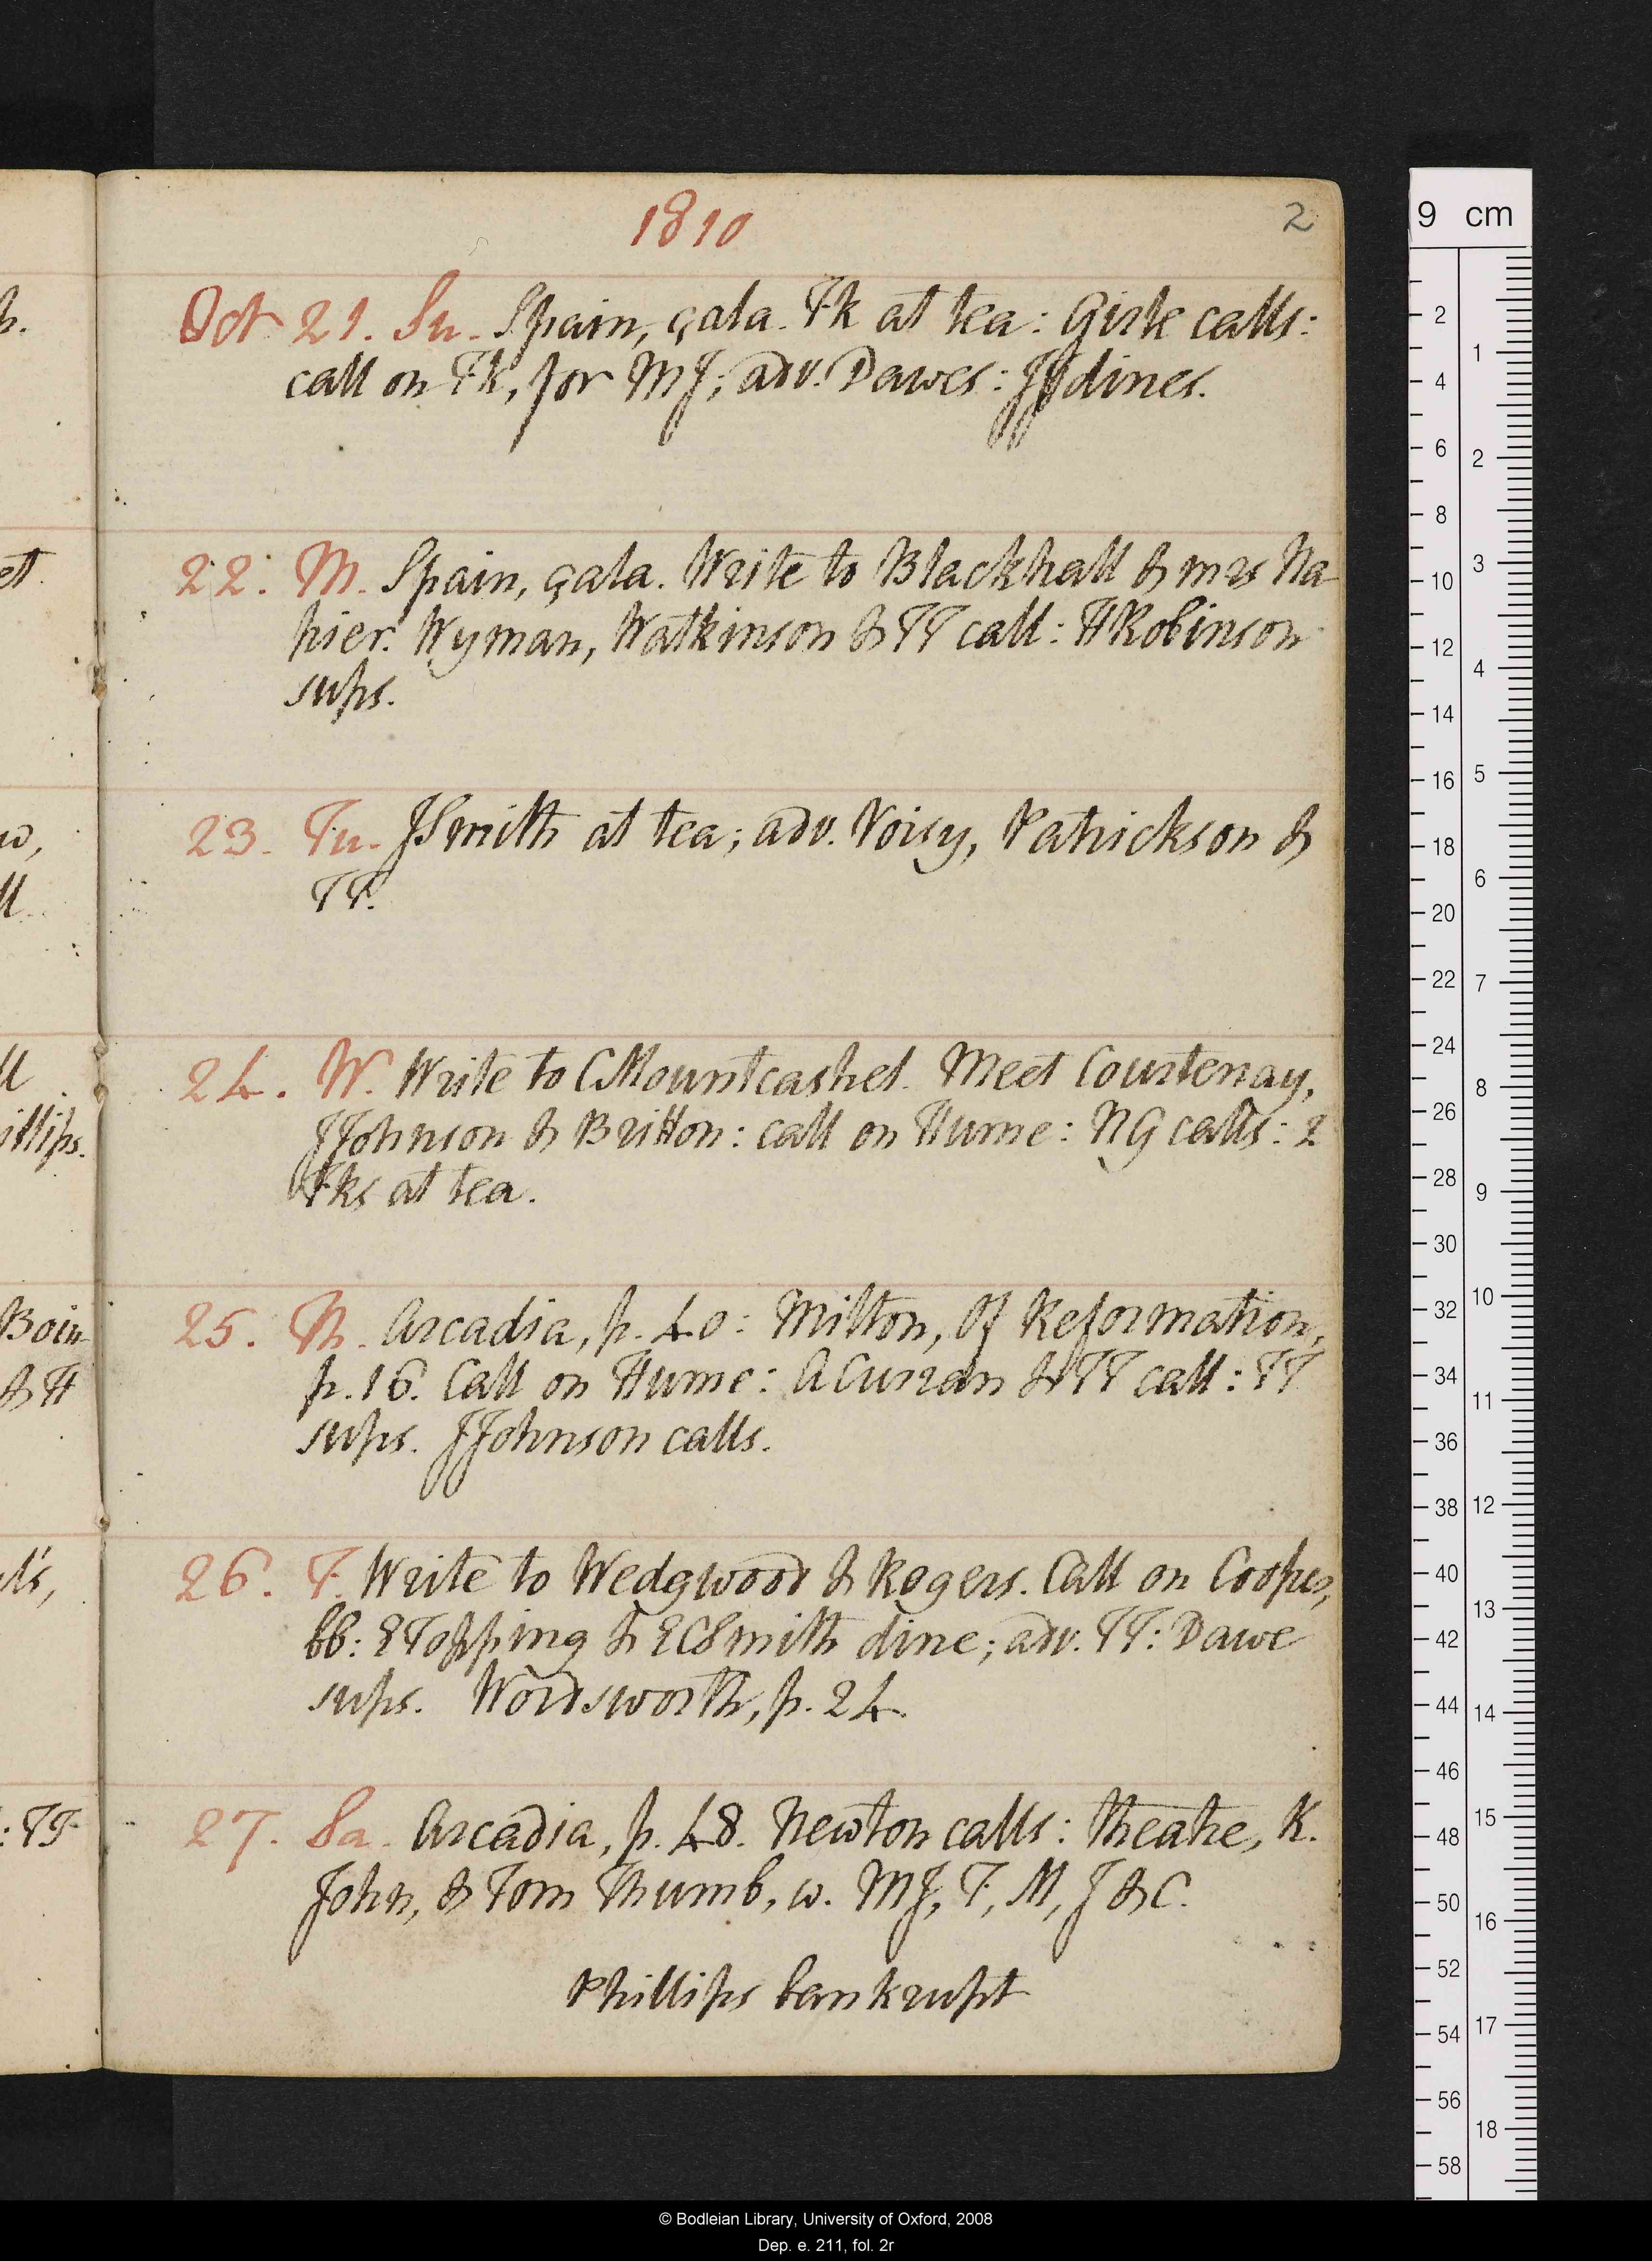 1810
2
Oct 21. Su. Spain, çala. Fk at tea: Girle calls:
call on Fk, for MJ; adv. Dawes: JJ dines.
22. M. Spain, çala. Write to Blackhall & mrs Na-
pier. Wyman, Watkinson & TT call: HRobinson
sups.
23. Tu. JSmith at tea; adv. Voisy, Patrickson &
TT.
24. W. Write to CMountcashel. Meet Courtenay,
JJohnson & Britton: call on Hume: NG calls: 2
Fks at tea.
25. Th. Arcadia, p. 40: Milton, Of Reformation,
p. 16. Call on Hume: ACurran & TT call: TT
sups. JJohnson calls.
26. F. Write to Wedgwood & Rogers. Call on Cooper,
bb: ETopping & ECSmith dine; adv. TT: Dawe
sups. Wordsworth, p. 24.
27. Sa. Arcadia, p. 48. Newton calls: theatre, K.
John, & Tom Thumb, w. MJ, F, M, J & C.
Phillips bankrupt
et
w,
ll
ll
illips.
Boin-
& H
: TT
9 cm
2
4
6
8
10
12
14
16
18
20
22
24
26
28
30
32
34
36
38
40
42
44
46
48
50
52
54
56
58
1
2
3
4
5
6
7
8
9
10
11
12
13
14
15
16
17
18
© Bodleian Library, University of Oxford, 2008
Dep. e. 211, fol. 2r